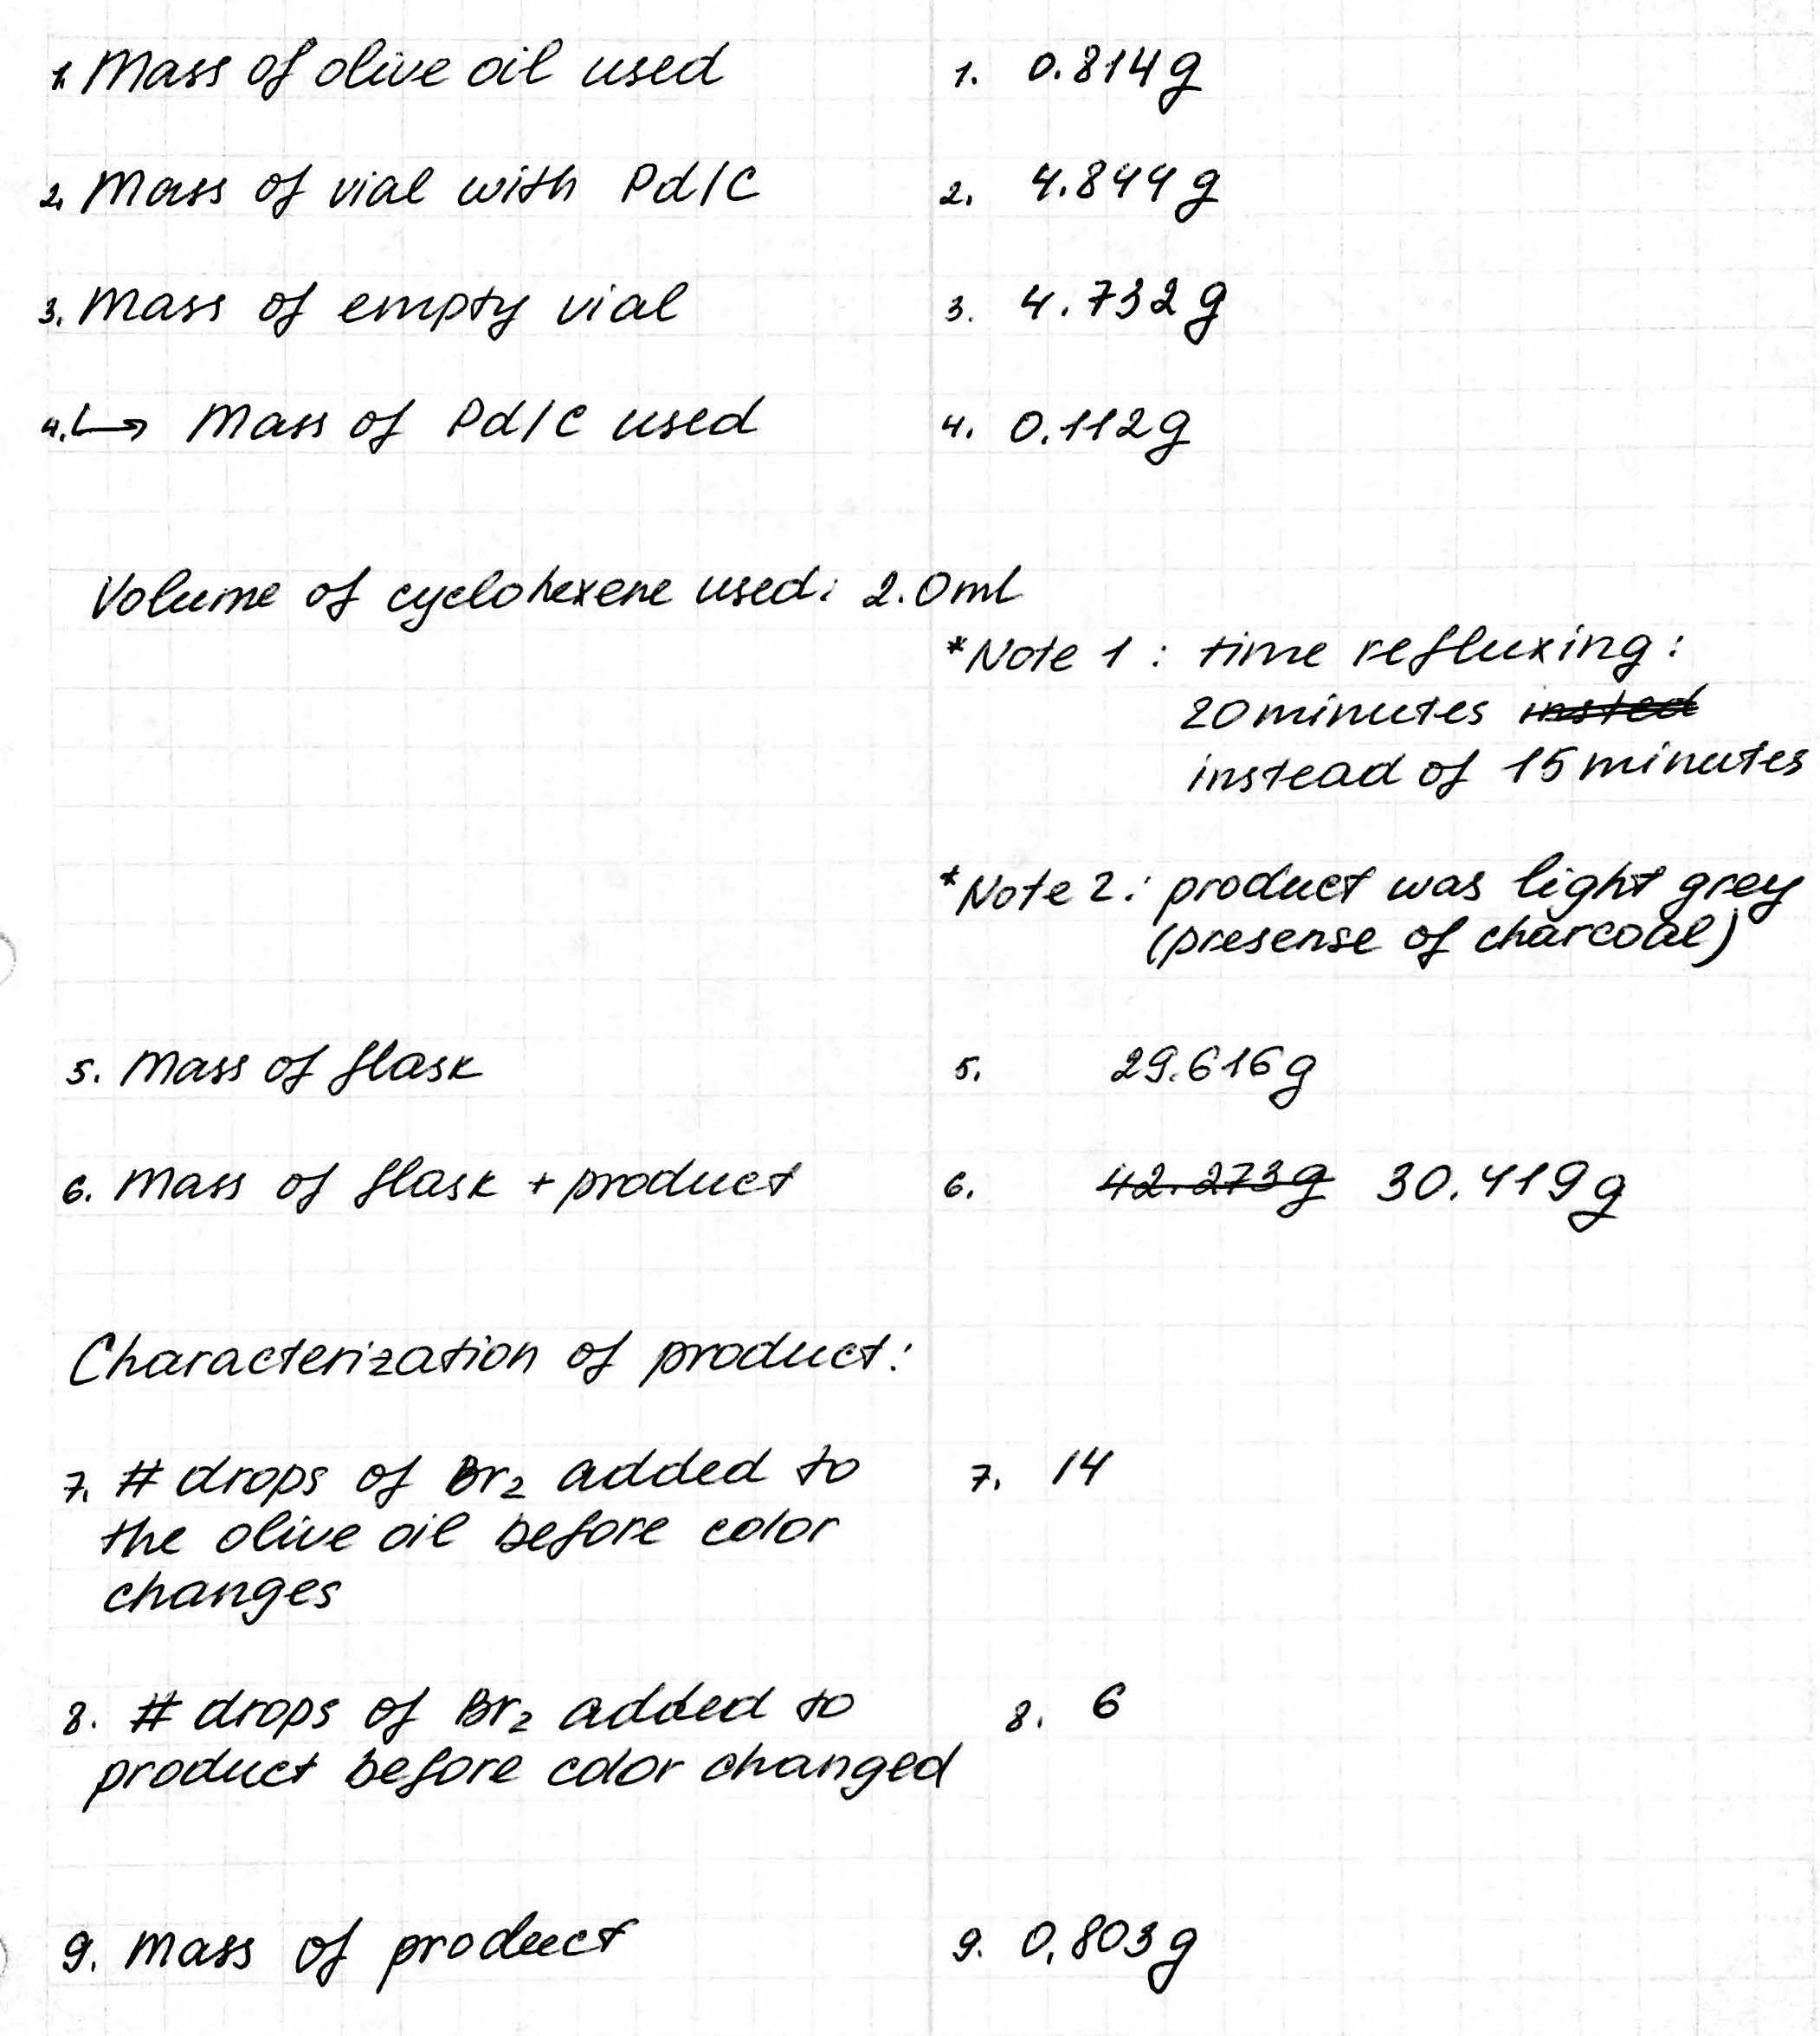 1. Mass of olive oil used 1. 0.814g
2. Mass of vial with Pd/C 2. 4.844g
3. Mass of empty vial 3. 4.732g
4. ↳ Mass of Pd/C used 4. 0.112g
Volume of cyclohexene used: 2.0ml
*Note 1 : time refluxing:
20 minutes insted
instead of 15 minutes
*Note 2: product was light grey
(presense of charcoal)
5. Mass of flask 5. 29.616g
6. Mass of flask + product 6. 42.273g 30.419g
Characterization of product:
7. # drops of Br₂ added to 7. 14
the olive oil before color
changes
8. # drops of Br₂ added to 8. 6
product before color changed
9. Mass of product 9. 0,803g